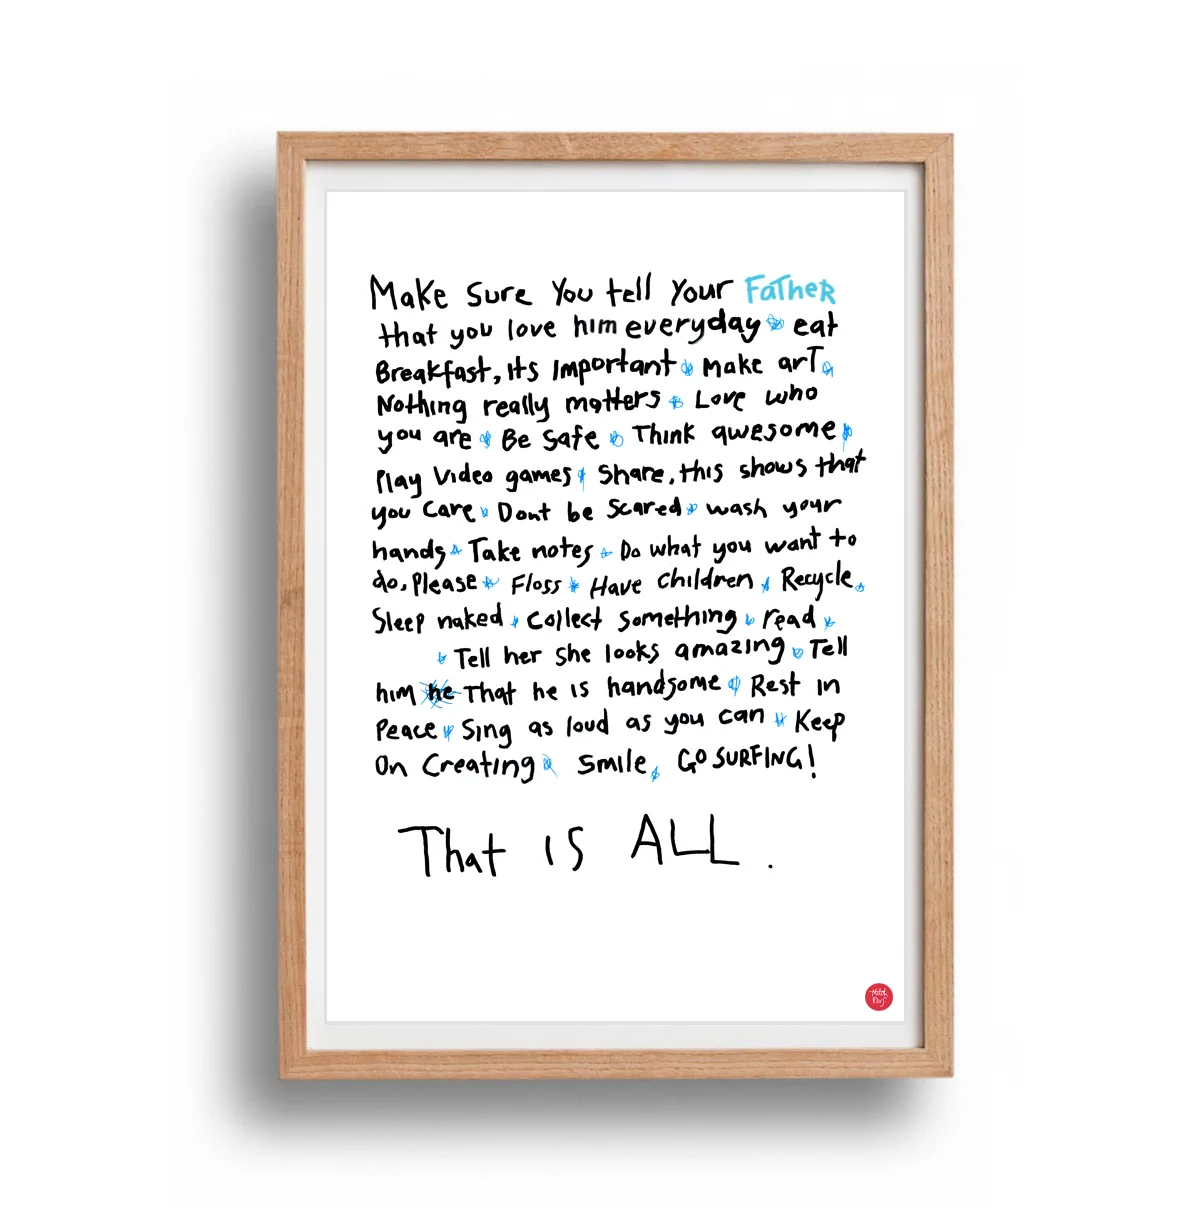 Make Sure You tell Your Father
that you love him everyday eat
Breakfast, its Important Make art
Nothing really matters Love who
you are Be Safe Think awesome
Play Video games Share, this shows that
you Care Dont be Scared wash your
hands Take notes Do what you want to
do, Please Floss Have children Recycle
Sleep naked Collect Something read
Tell her she looks amazing Tell
him he That he is handsome Rest in
Peace Sing as loud as you can Keep
On Creating Smile GO SURFING!
That IS ALL.